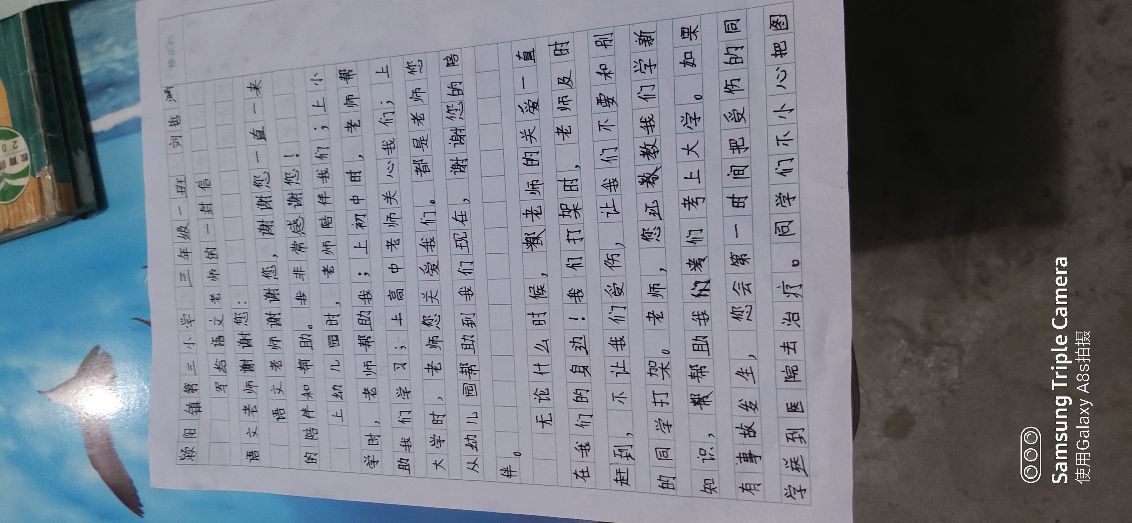 颍阳镇第三小学 三年级一班 刘哲
写给语文老师的一封信
语文老师谢谢您：
语文老师谢谢您，谢谢您一直一来
的陪伴和帮助。我非常感谢您！
上幼儿园时，老师陪伴我们；上小
学时，老师帮助我；上初中时，老师帮
助我们学习；上高中老师关心我们；上
大学时，老师您关爱我们。都是老师您
从幼儿园帮助到我们现在，谢谢您的陪
伴。
无论什么时候，老师的关爱一直
在我们的身边！我们打架时，老师及时
赶到，不让我们受伤，让我们不要和别
的同学打架。老师，您还教我们学新
知识，帮助我们考上大学。如果
有事故发生，您会第一时间把受伤的同
学送到医院去治疗。同学们不小心把图
Samsung Triple Camera
使用Galaxy A8s拍摄